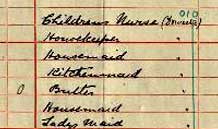 010
Childrens Nurse (Domestic)
Housekeeper "
Housemaid "
Kitchenmaid "
0 Butler "
Housemaid "
Ladys Maid "